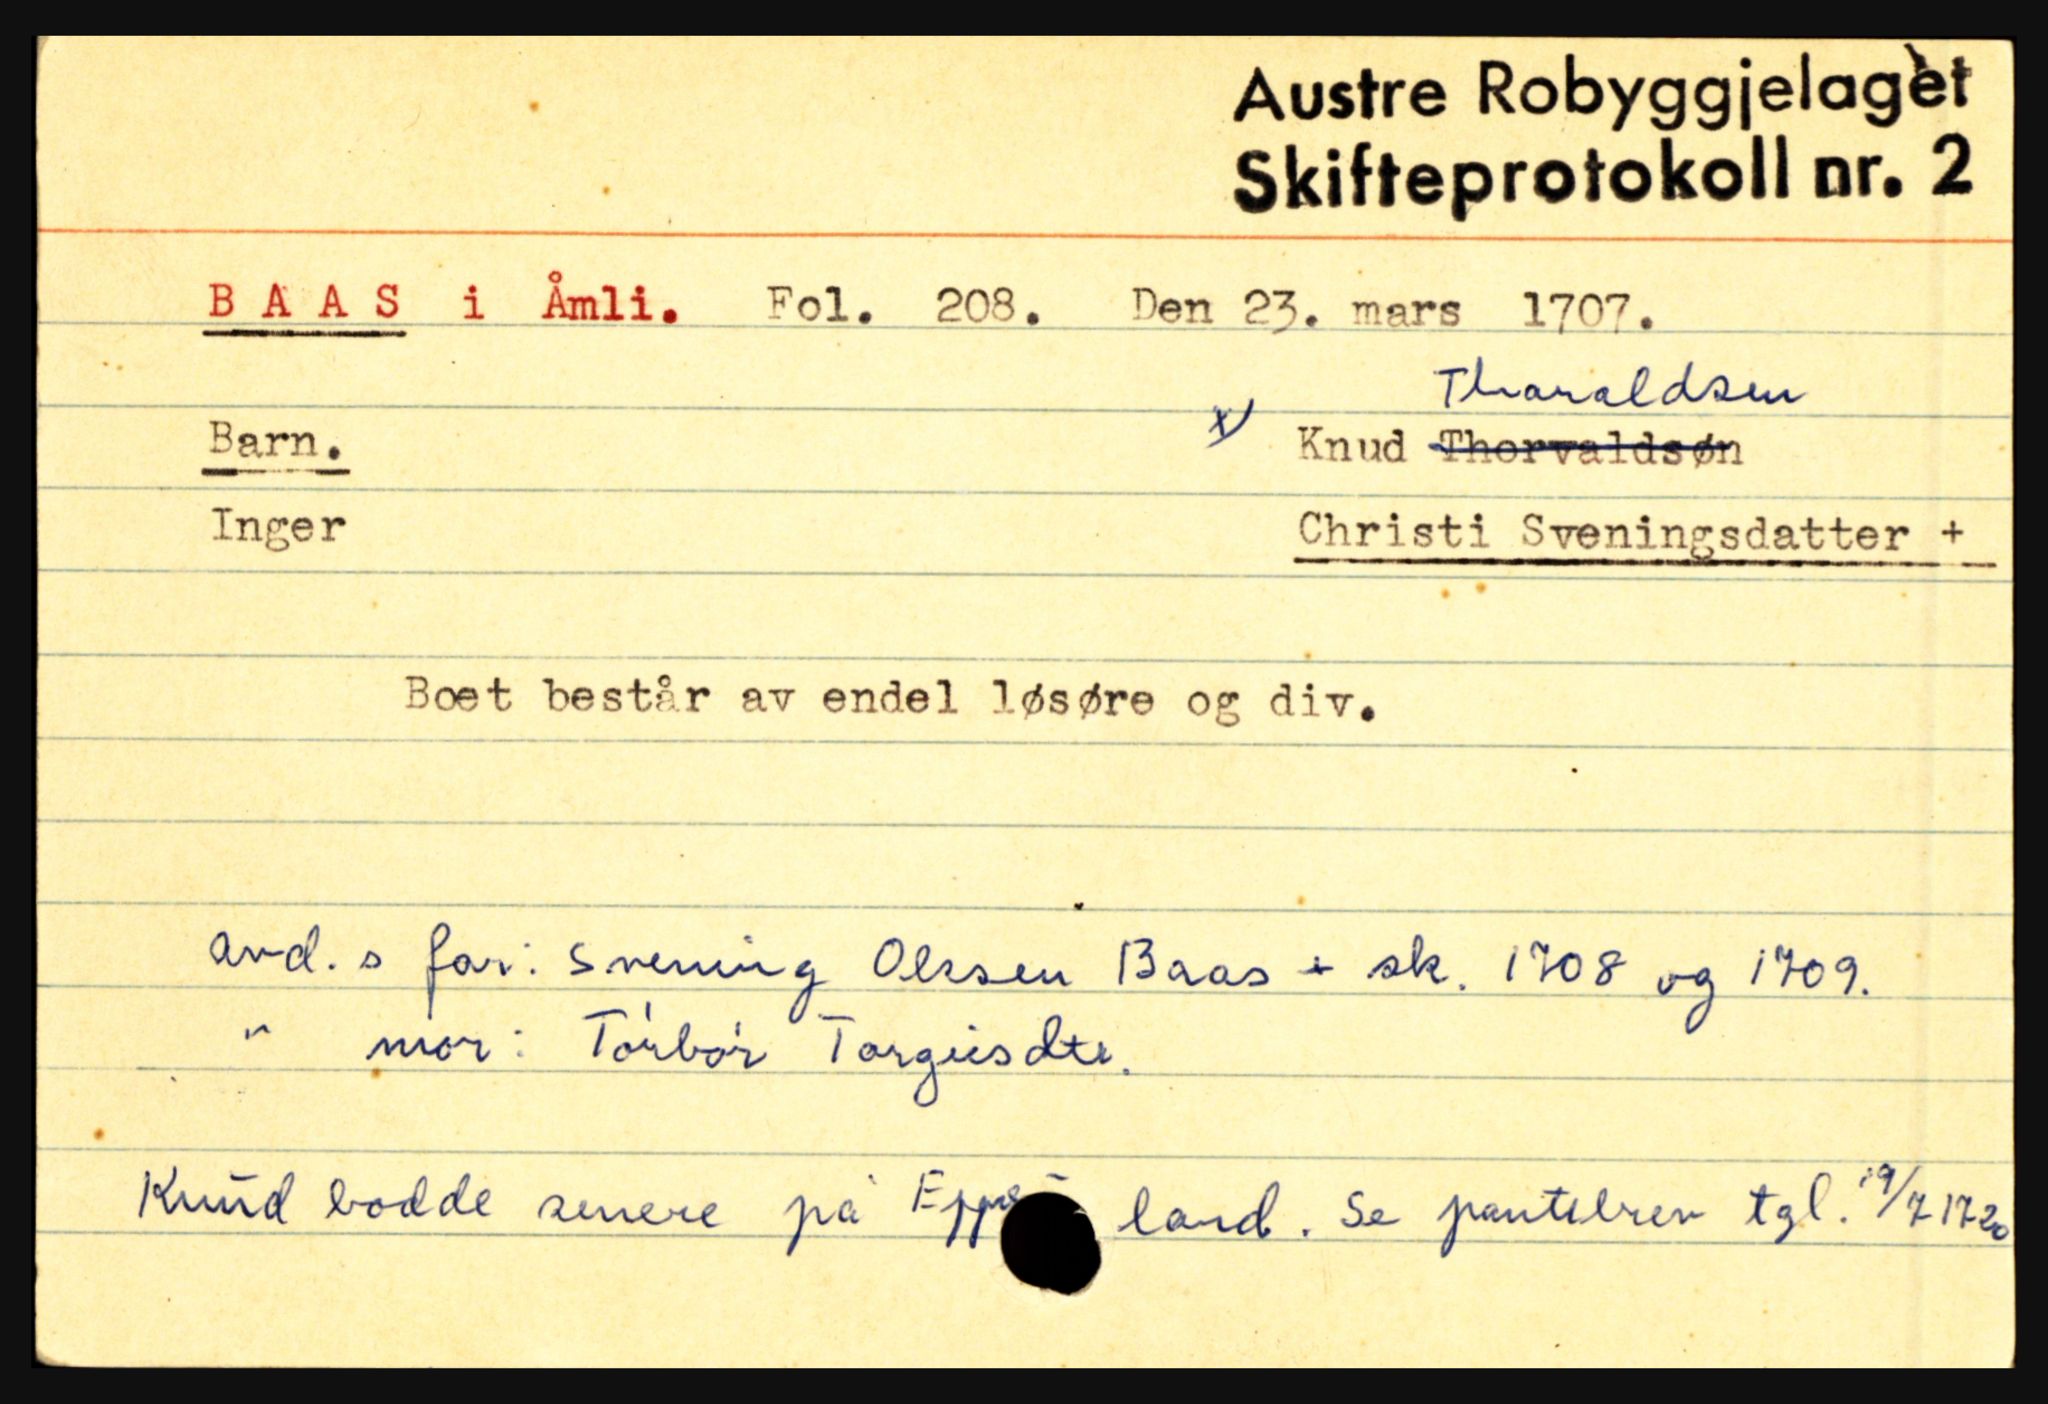 Austre Robyggjelaget
Skifteprotokoll nr. 2
B A A S i Åmli. Fol. 208. Den 23. mars 1707.
Tharaldsen
Barn. x) Knud Thorvaldsøn
Inger Christi Sveningsdatter +
Boet består av endel løsøre og div.
avd. s far: Svening Olssen Baas + sk. 1708 og 1709.
" mor: Torbor Targiisdtr.
Knud bodde senere på land. Se pantebrev tgl. 19/7 1720